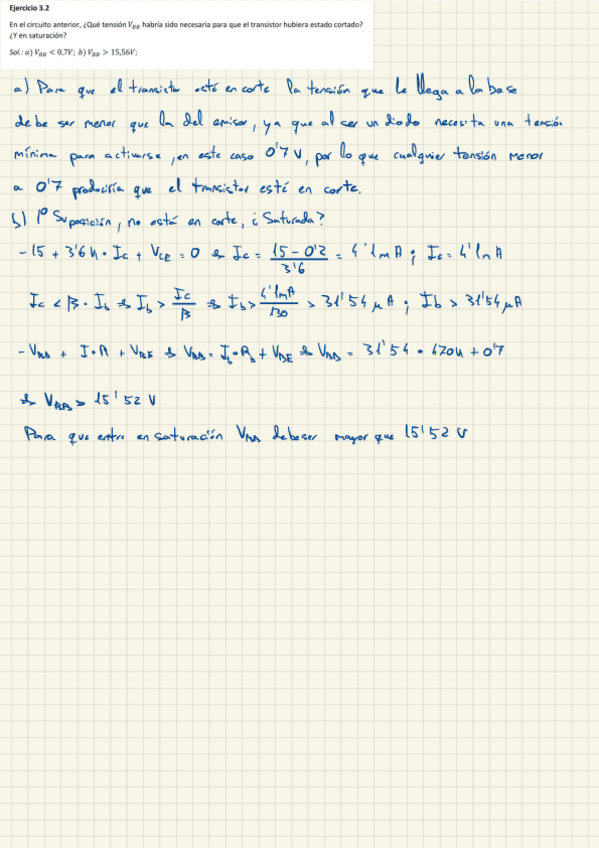 Ejercicio 3.2
En el circuito anterior, ¿Qué tensión V_BB habría sido necesaria para que el transistor hubiera estado cortado?
¿Y en saturación?
Sol.: a) V_BB < 0,7V; b) V_BB > 15,56V;
a) Para que el transistor esté en corte la tensión que le llega a la base
debe ser menor que la del emisor, ya que al ser un diodo necesita una tensión
mínima para activarse, en este caso 0'7 V, por lo que cualquier tensión menor
a 0'7 produciría que el transistor esté en corte.
b) 1º Suposición, no está en corte, ¿Saturada?
-15 + 3'6K · Ic + VCE = 0 => Ic = (15 - 0'2)/3'6 = 4'1mA ; Ic = 4'1mA
Ic < β · Ib => Ib > Ic/β => Ib > 4'1mA/130 > 31'54 μA ; Ib > 31'54 μA
- VBB + I·R + VBE => VBB = Ib·Rb + VBE => VBB = 31'54 · 470K + 0'7
=> VBB > 15'52 V
Para que entre en saturación VBB debe ser mayor que 15'52 V